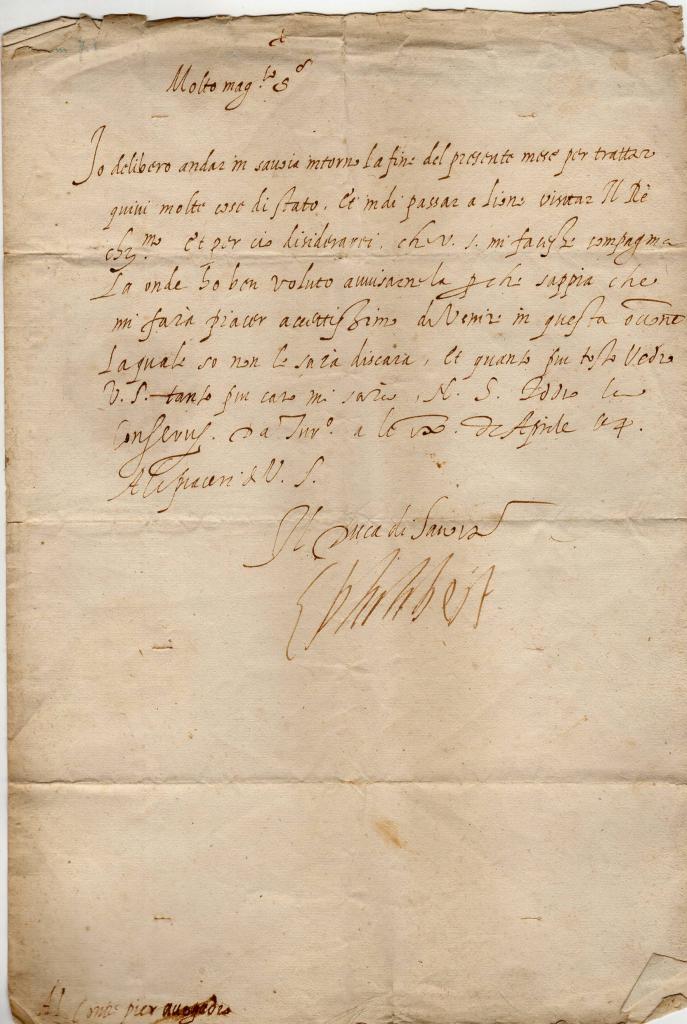 Molto mag.co S.or
Io delibero andar in savoia intorno la fine del presente mese per trattar
quivi molte cose di stato. Et indi passar a lione visitar Il Rè
chr.mo Et per cio disiderarei, che v. s. mi facesse compagnia
La onde ho ben voluto avvisarnela perche sappia che
mi farà piacer accettissimo di venire in questa
Laquale so non le sarà discara, Et quanto piu tosto vedrò
V. S. tanto piu caro mi sarà, N. S. Iddio la
Conservi. Da Tur.o a le di Aprile
A li piaceri di V. S.
Il Duca di Savoia
EPhilibert
Al Conte pier avogadro